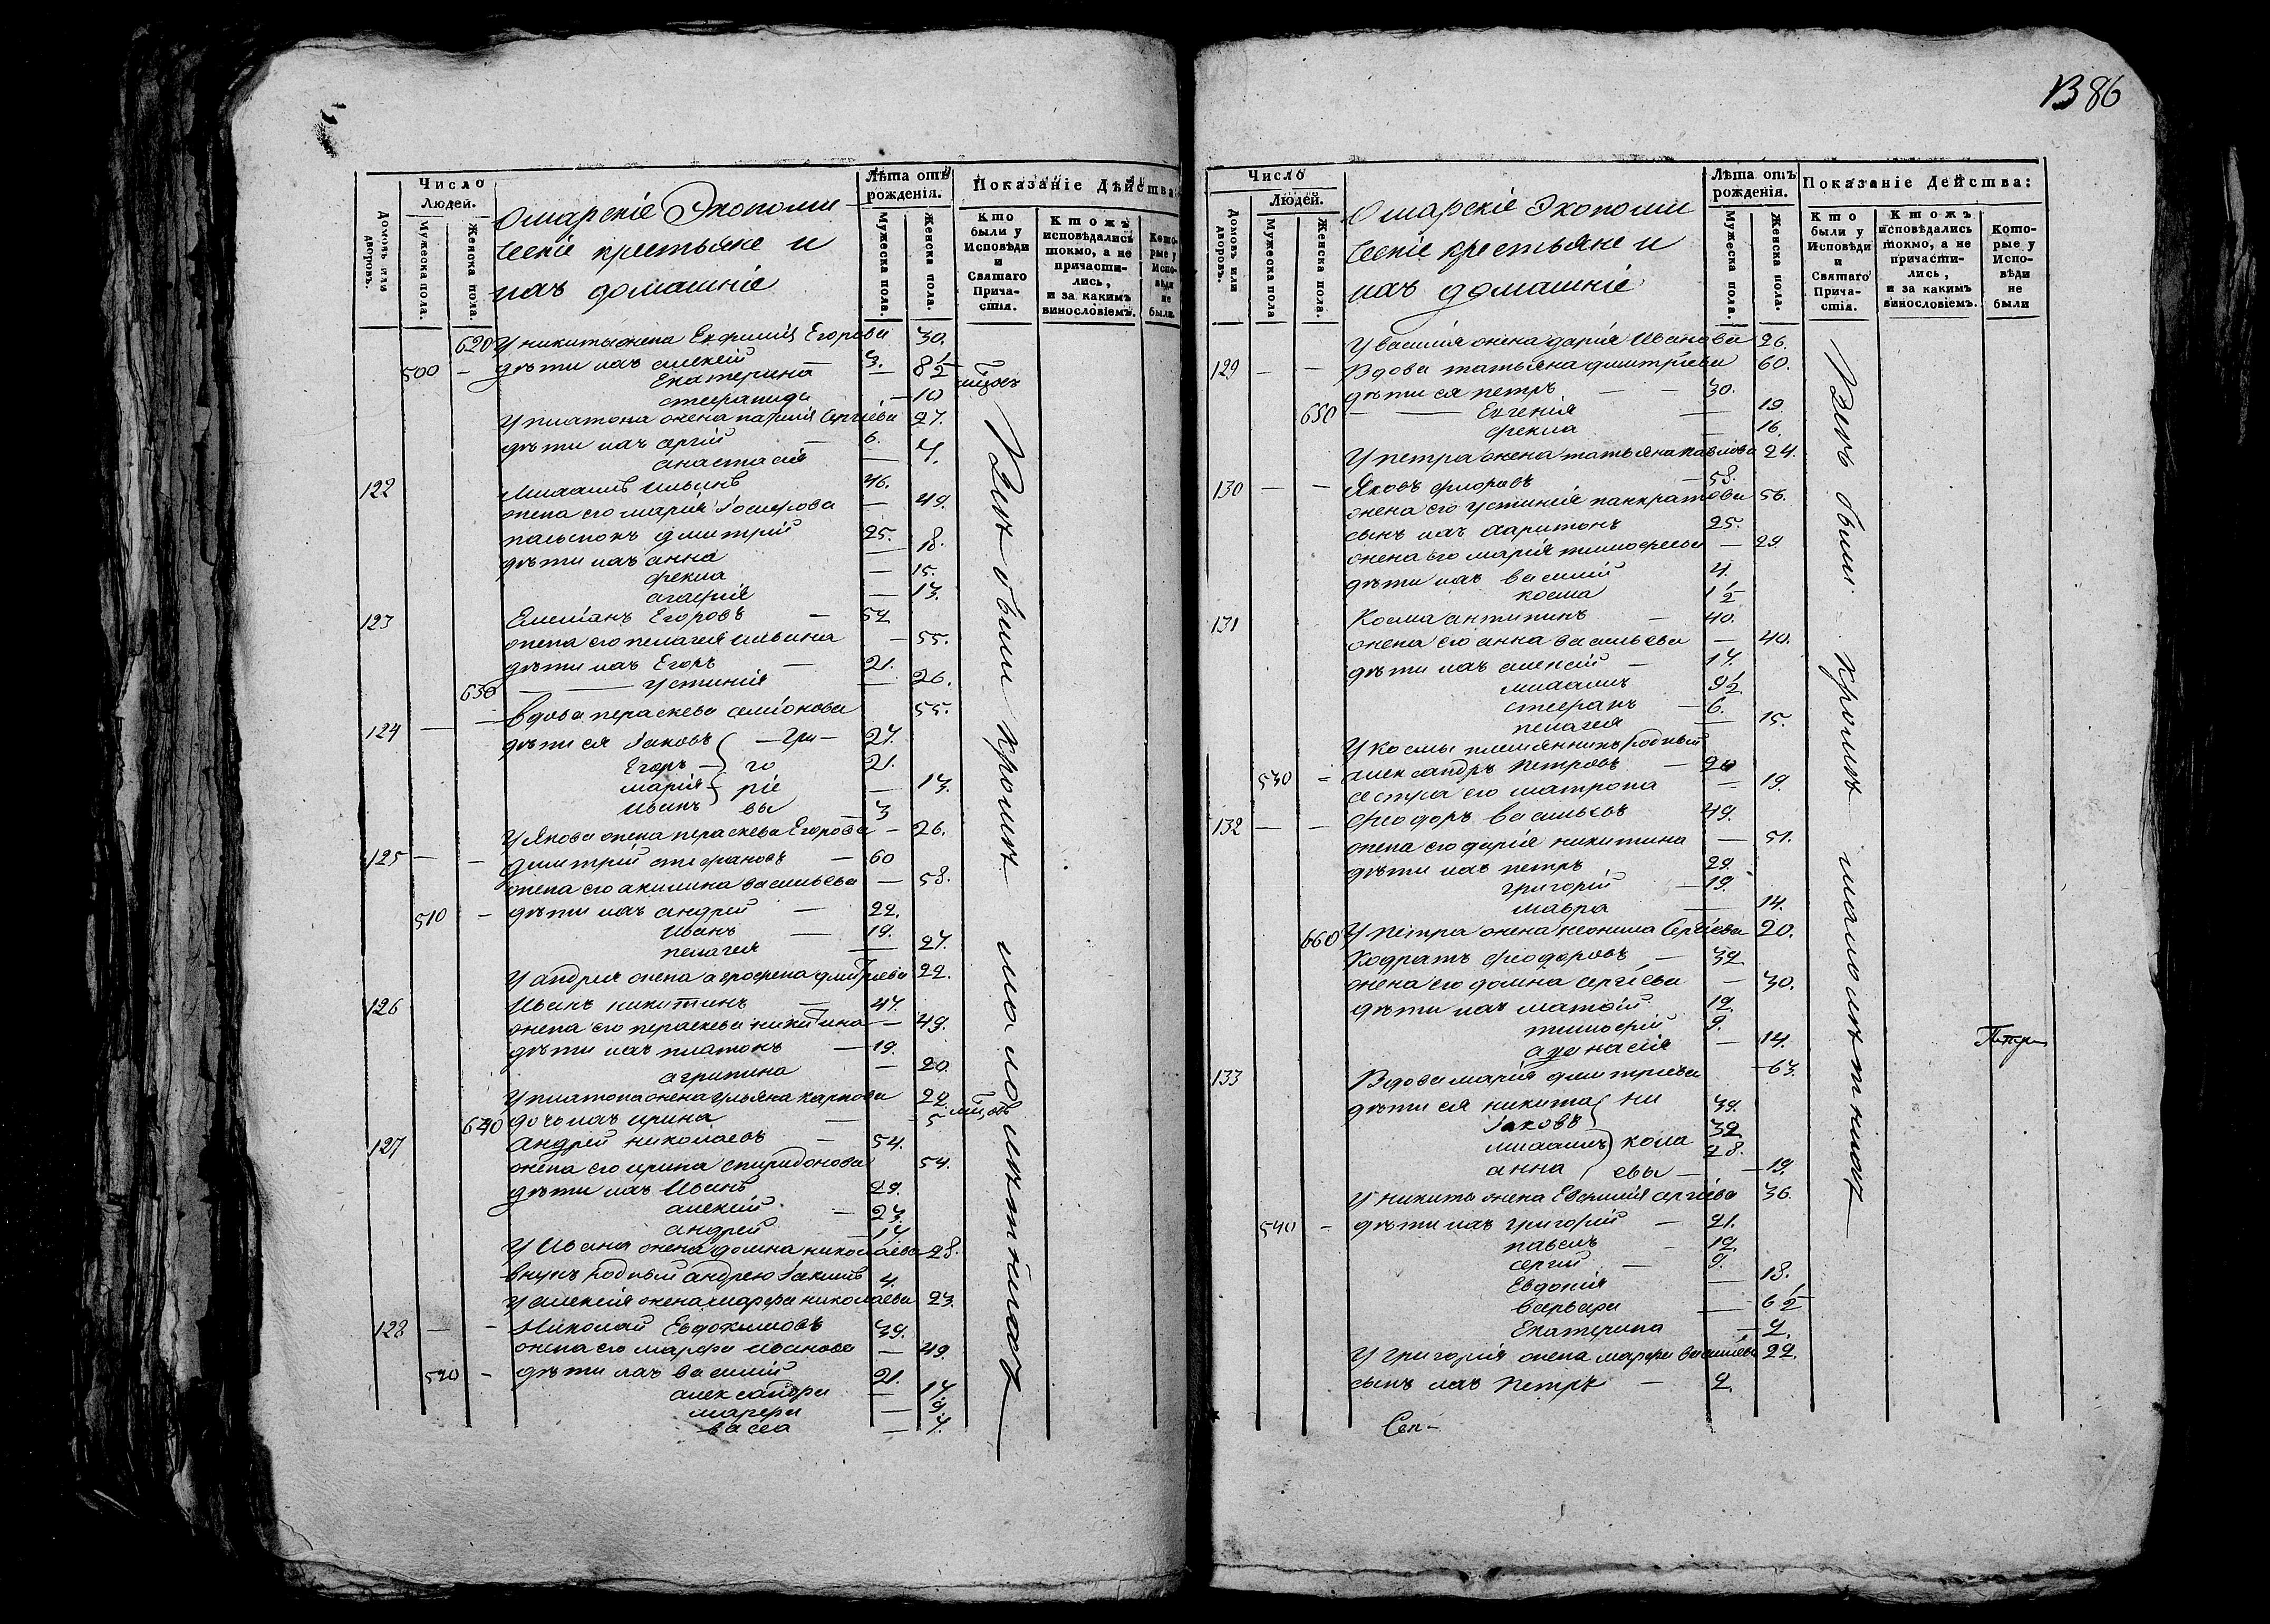 Число
Людей.
Домовъ или дворовъ.
Мужеска пола.
Женска пола.
экономи
ческіе крестьяне и
ихъ домашніе
Лѣта отъ рожденія.
Мужеска пола.
Женска пола.
Показаніе Дѣйства:
Кто были у Исповѣди и Святаго Причастія.
Ктожъ исповѣдались токмо, а не причастились, и за какимъ винословіемъ.
Которые у Исповѣди не были.
620 У никиты жена Евфимія Егорова 30.
500 — дѣти ихъ алексѣй — 3.
Екатерина — 8 1/2
степанида — 10
У платона жена Сергіева 27.
дѣти ихъ сергій — 6.
анастасія — 4.
122 Михаилъ ильинъ 46.
жена его марія Іосифова — 49.
дмитрій 25.
дѣти ихъ анна — 18.
фекла — 15.
агафія — 13.
123 Емеліанъ Егоровъ — 52
жена его пелагея ильина — 55.
дѣти ихъ Егоръ — 21.
630 — устинія — 26.
124 — — вдова параскева семіонова 55.
дѣти ея Іаковъ — Гри — 27.
Егоръ — го 21.
марія — ріе — 13.
иванъ вы 3
У Якова жена параскева Егорова — 26.
125 — — дмитрій стефановъ — 60
жена его акилина васильева — 58.
510 — дѣти ихъ андрей — 22.
иванъ — 19.
пелагея — 27.
У андрея жена аграфена дмитріева 22.
126 Иванъ никитинъ — 47.
жена его параскева никитина — 49.
дѣти ихъ платонъ — 19.
агрипина — 20.
У платона жена ульяна карпова 22.
640 дочь ихъ ирина — 5
127 андрей николаевъ — 54.
жена его ирина спиридонова 54.
дѣти ихъ Иванъ 29.
алексѣй — 23.
андрей — 14
У Ивана жена домна николаева 28.
внукъ родный андрею 4.
У алексія жена марфа николаева 23.
128 — — Николай Евдокимовъ 39.
жена его марфа иванова — 49.
520 — дѣти ихъ василій 21.
александра — 17.
марфа — 9.
васса — 7.
Всѣ были кромѣ малолѣтнихъ
86
Число
Людей.
Домовъ или дворовъ.
Мужеска пола
Женска пола.
экономи
ческіе крестьяне и
ихъ домашніе
Лѣта отъ рожденія.
Мужеска пола.
Женска пола.
Показаніе Действа:
Кто были у Исповѣди и Святаго Причастія.
Ктожъ исповѣдались токмо, а не причастились, и за какимъ винословіемъ.
Которые у Исповѣди не были
У василія жена дарія Иванова 26.
129 — — Вдова татьяна дмитріева 60.
дѣти ея петръ — — 30.
650 — — Евгенія — 19.
фекла — 16.
У петра жена татьяна павлова 24.
130 — — Яковъ флоровъ — 58.
жена его устинія панкратова 56.
сынъ ихъ харитонъ 25.
жена его марія тимофеева — 29.
дѣти ихъ василій 4.
косма 1 1/2
131 Косма антипинъ — 40.
жена его анна васильева — 40.
дѣти ихъ алексій — 17.
михаилъ 9 1/2
стефанъ — 6.
пелагея — 15.
У космы племянникъ родный
530 — александръ петровъ — 20
сестра его матрона — 19.
132 — — Феодоръ васильевъ 49.
жена его дарія никитина — 51.
дѣти ихъ петръ 29.
григорій — 19.
мавра — 14.
660 У петра жена неонила Сергіева 20.
Кодратъ феодоровъ — 32
жена его домна сергіева — 30.
дѣти ихъ матѳій 12.
тимофей 9.
афанасія — 14.
133 Вдова марія дмитріева — 63.
дѣти ея никита ни 39.
Іаковъ 32
михаилъ кола 28.
анна евы — 19.
У никиты жена Евфимія сергіева 36.
540 — дѣти ихъ григорій — 21.
павелъ — 12.
сергій — 9.
Евдокія — 18.
варвара — 6 1/2
Екатерина — 2.
У григорія жена марфа васильева 22.
сынъ ихъ петръ — 2.
Всѣ были кромѣ малолѣтнихъ